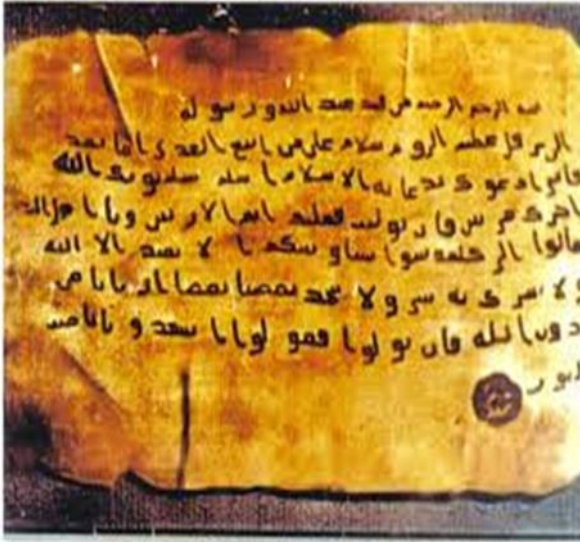 الله الرحمن الرحيم من محمد عبد الله ورسوله
الى هرقل عظيم الروم سلام على من اتبع الهدى اما بعد
فانى ادعوك بدعاية الاسلام اسلم تسلم يوتك الله
اجرك مرتين فان توليت فعليك اثم ويا
تعالوا الى كلمة سوا بيننا وبينكم الا نعبد الا الله
ولا نشرك به ولا يتخذ بعضنا بعضا اربابا من
دون الله فان تولوا فقولوا اشهدوا بانا